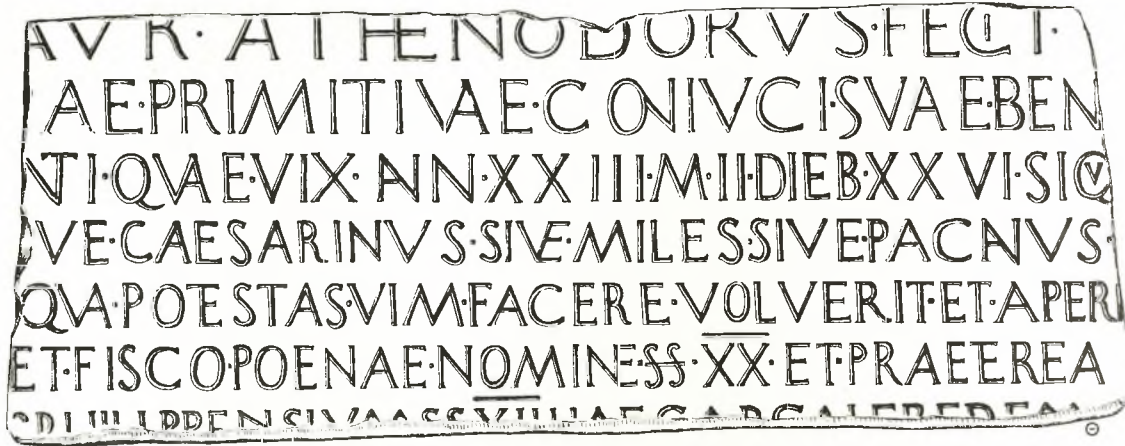 AVR·ATHENODORVS·FECIT·
AE·PRIMITIVAE·CONIVGI·SVAE·BEN
NTI·QVAE·VIX·ANN·XXIII·M·II·DIEB·XXVI·SIQV
VE·CAESARINVS·SIVE·MILES·SIVE·PAGNVS·
QVA·POTESTAS·VIM·FACERE·VOLVERIT·ET·APERI
ET·FISCO·POENAE·NOMINE·SS·XX·ET·PRAETEREA